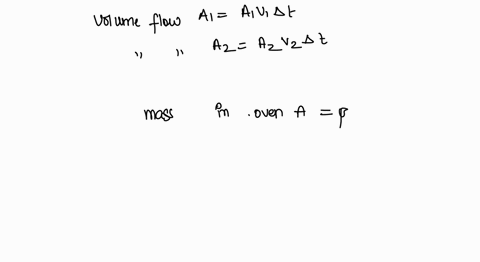 Volume flow A₁ = A₁V₁Δt
" " A₂ = A₂V₂Δt
mass in . oven A = p